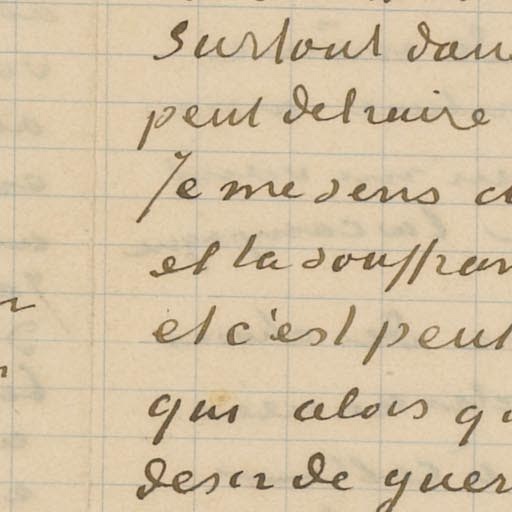 surtout dans
peut detruire
Je me sens
et la souffran
et c'est peut
qui alors q
desir de guer